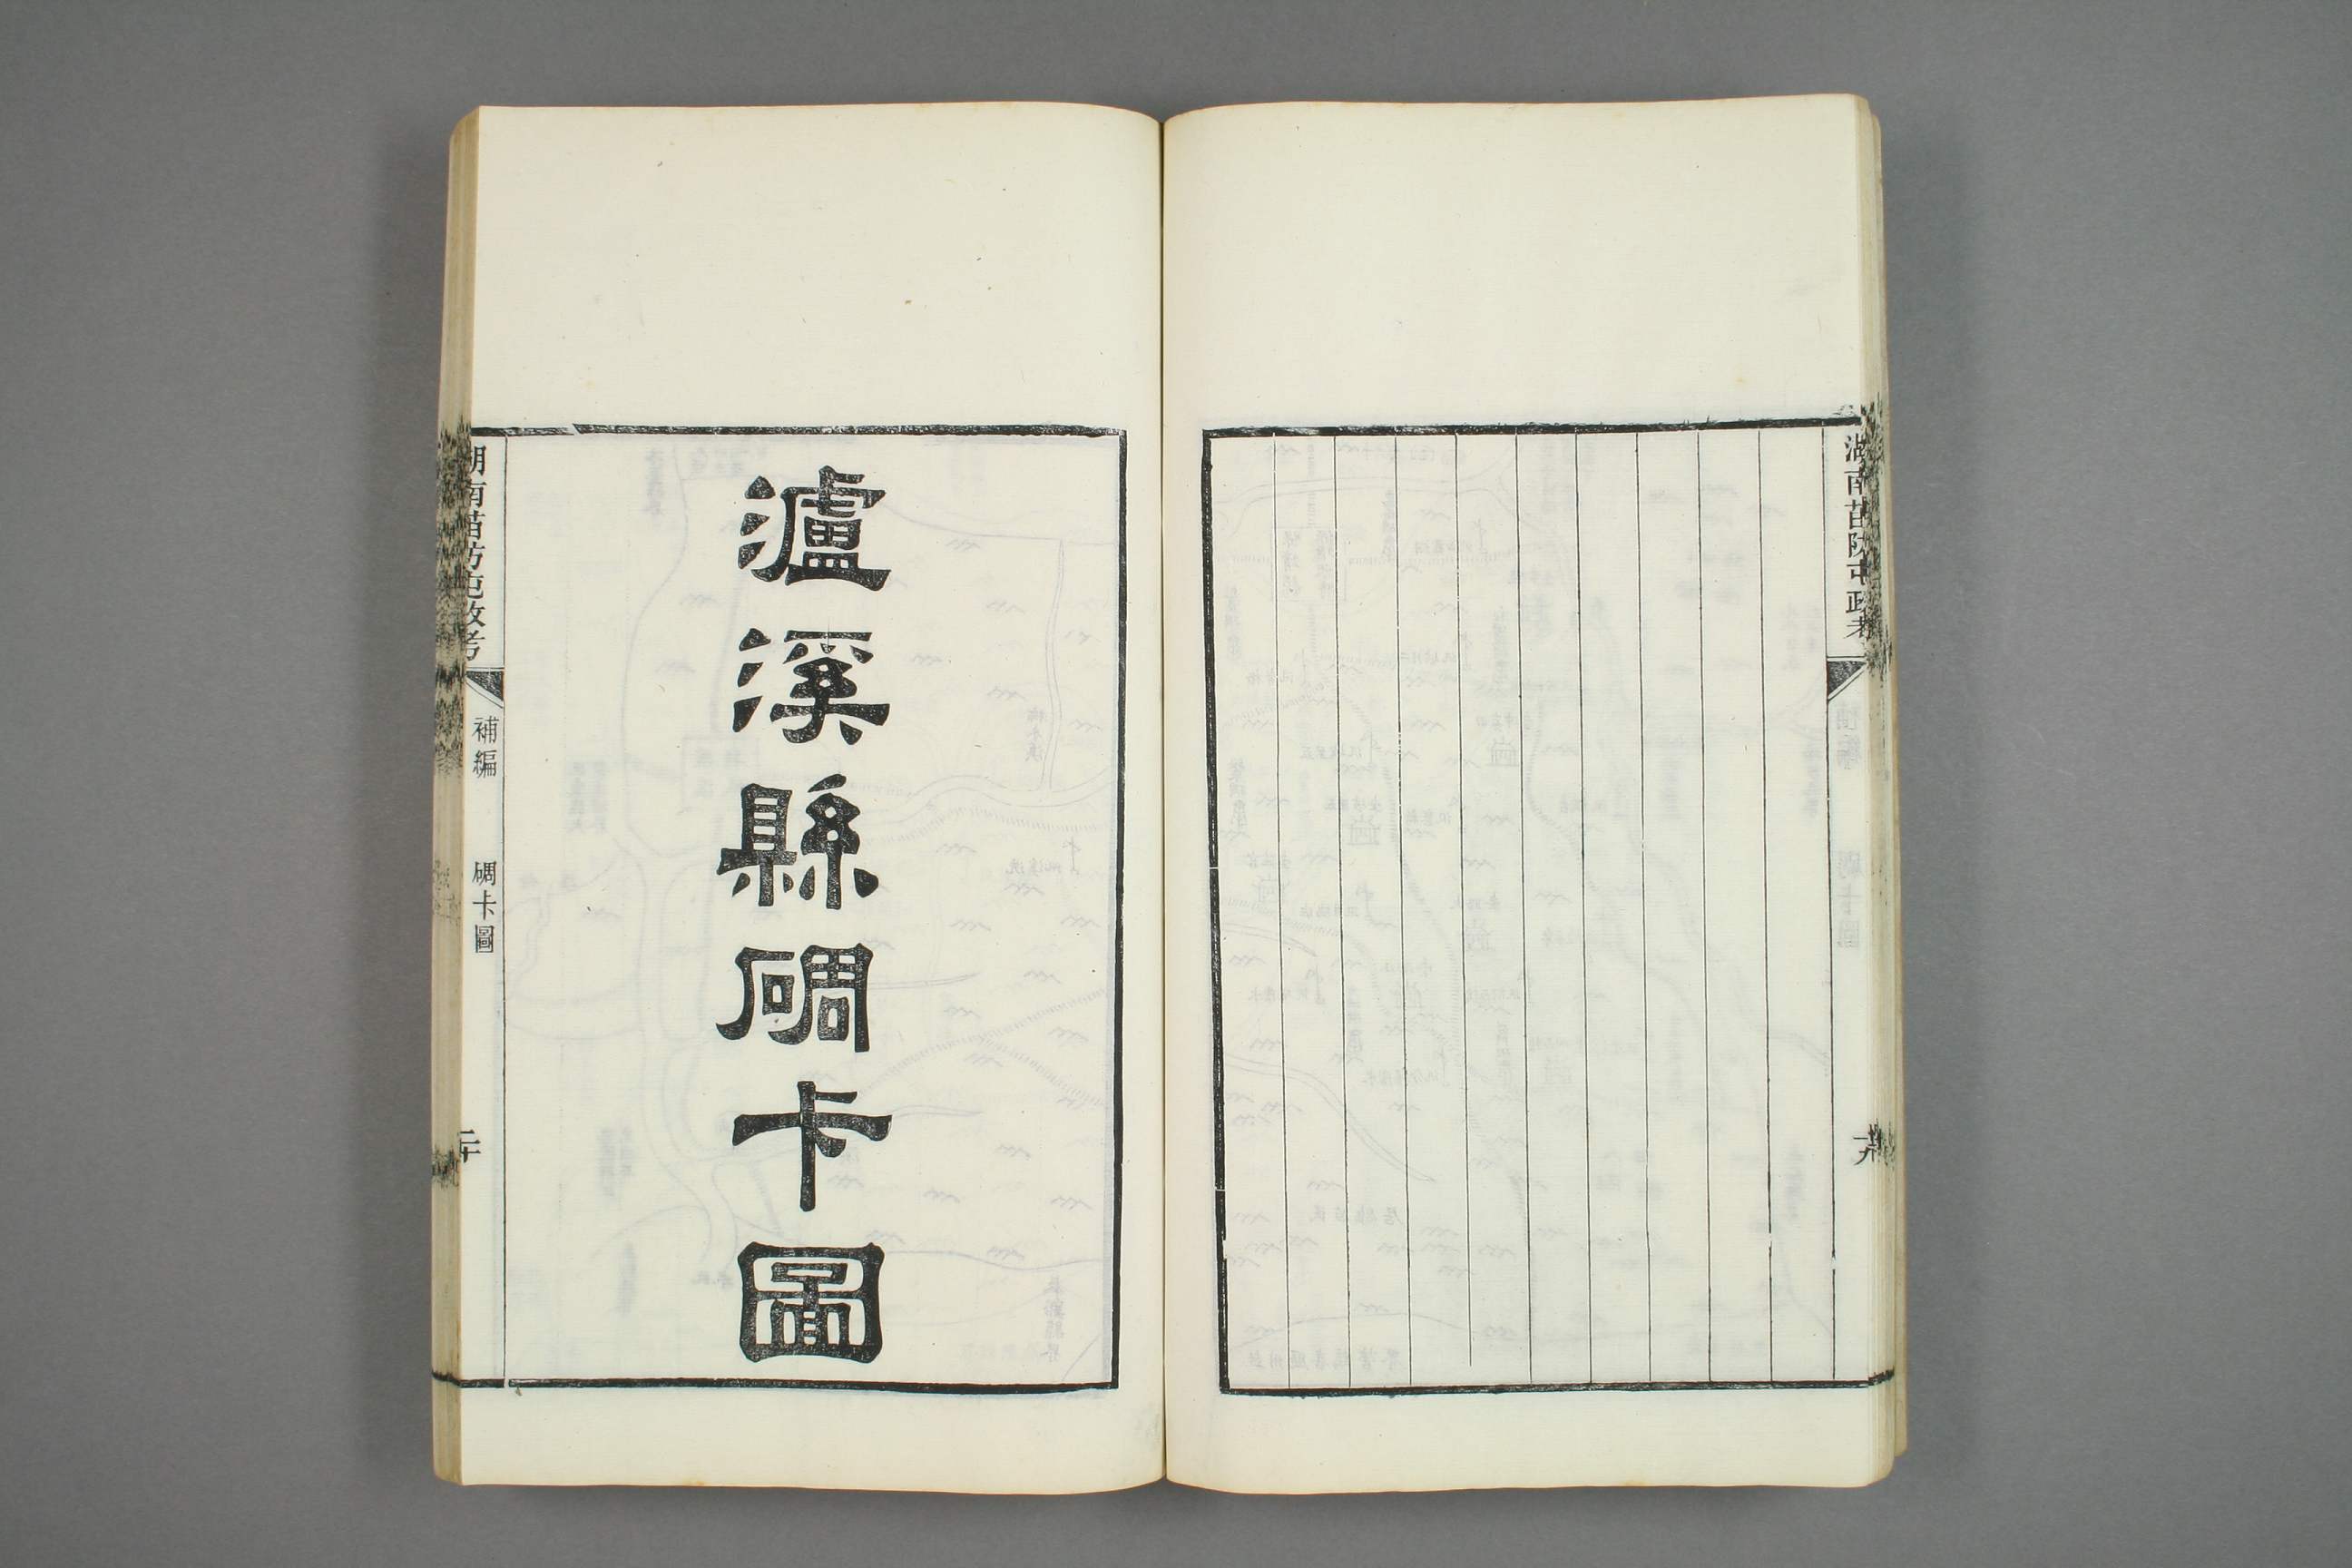 湖南苗防屯政考
瀘溪縣碉卡圖
湖南苗防屯政考
補編
碉卡圖
二十